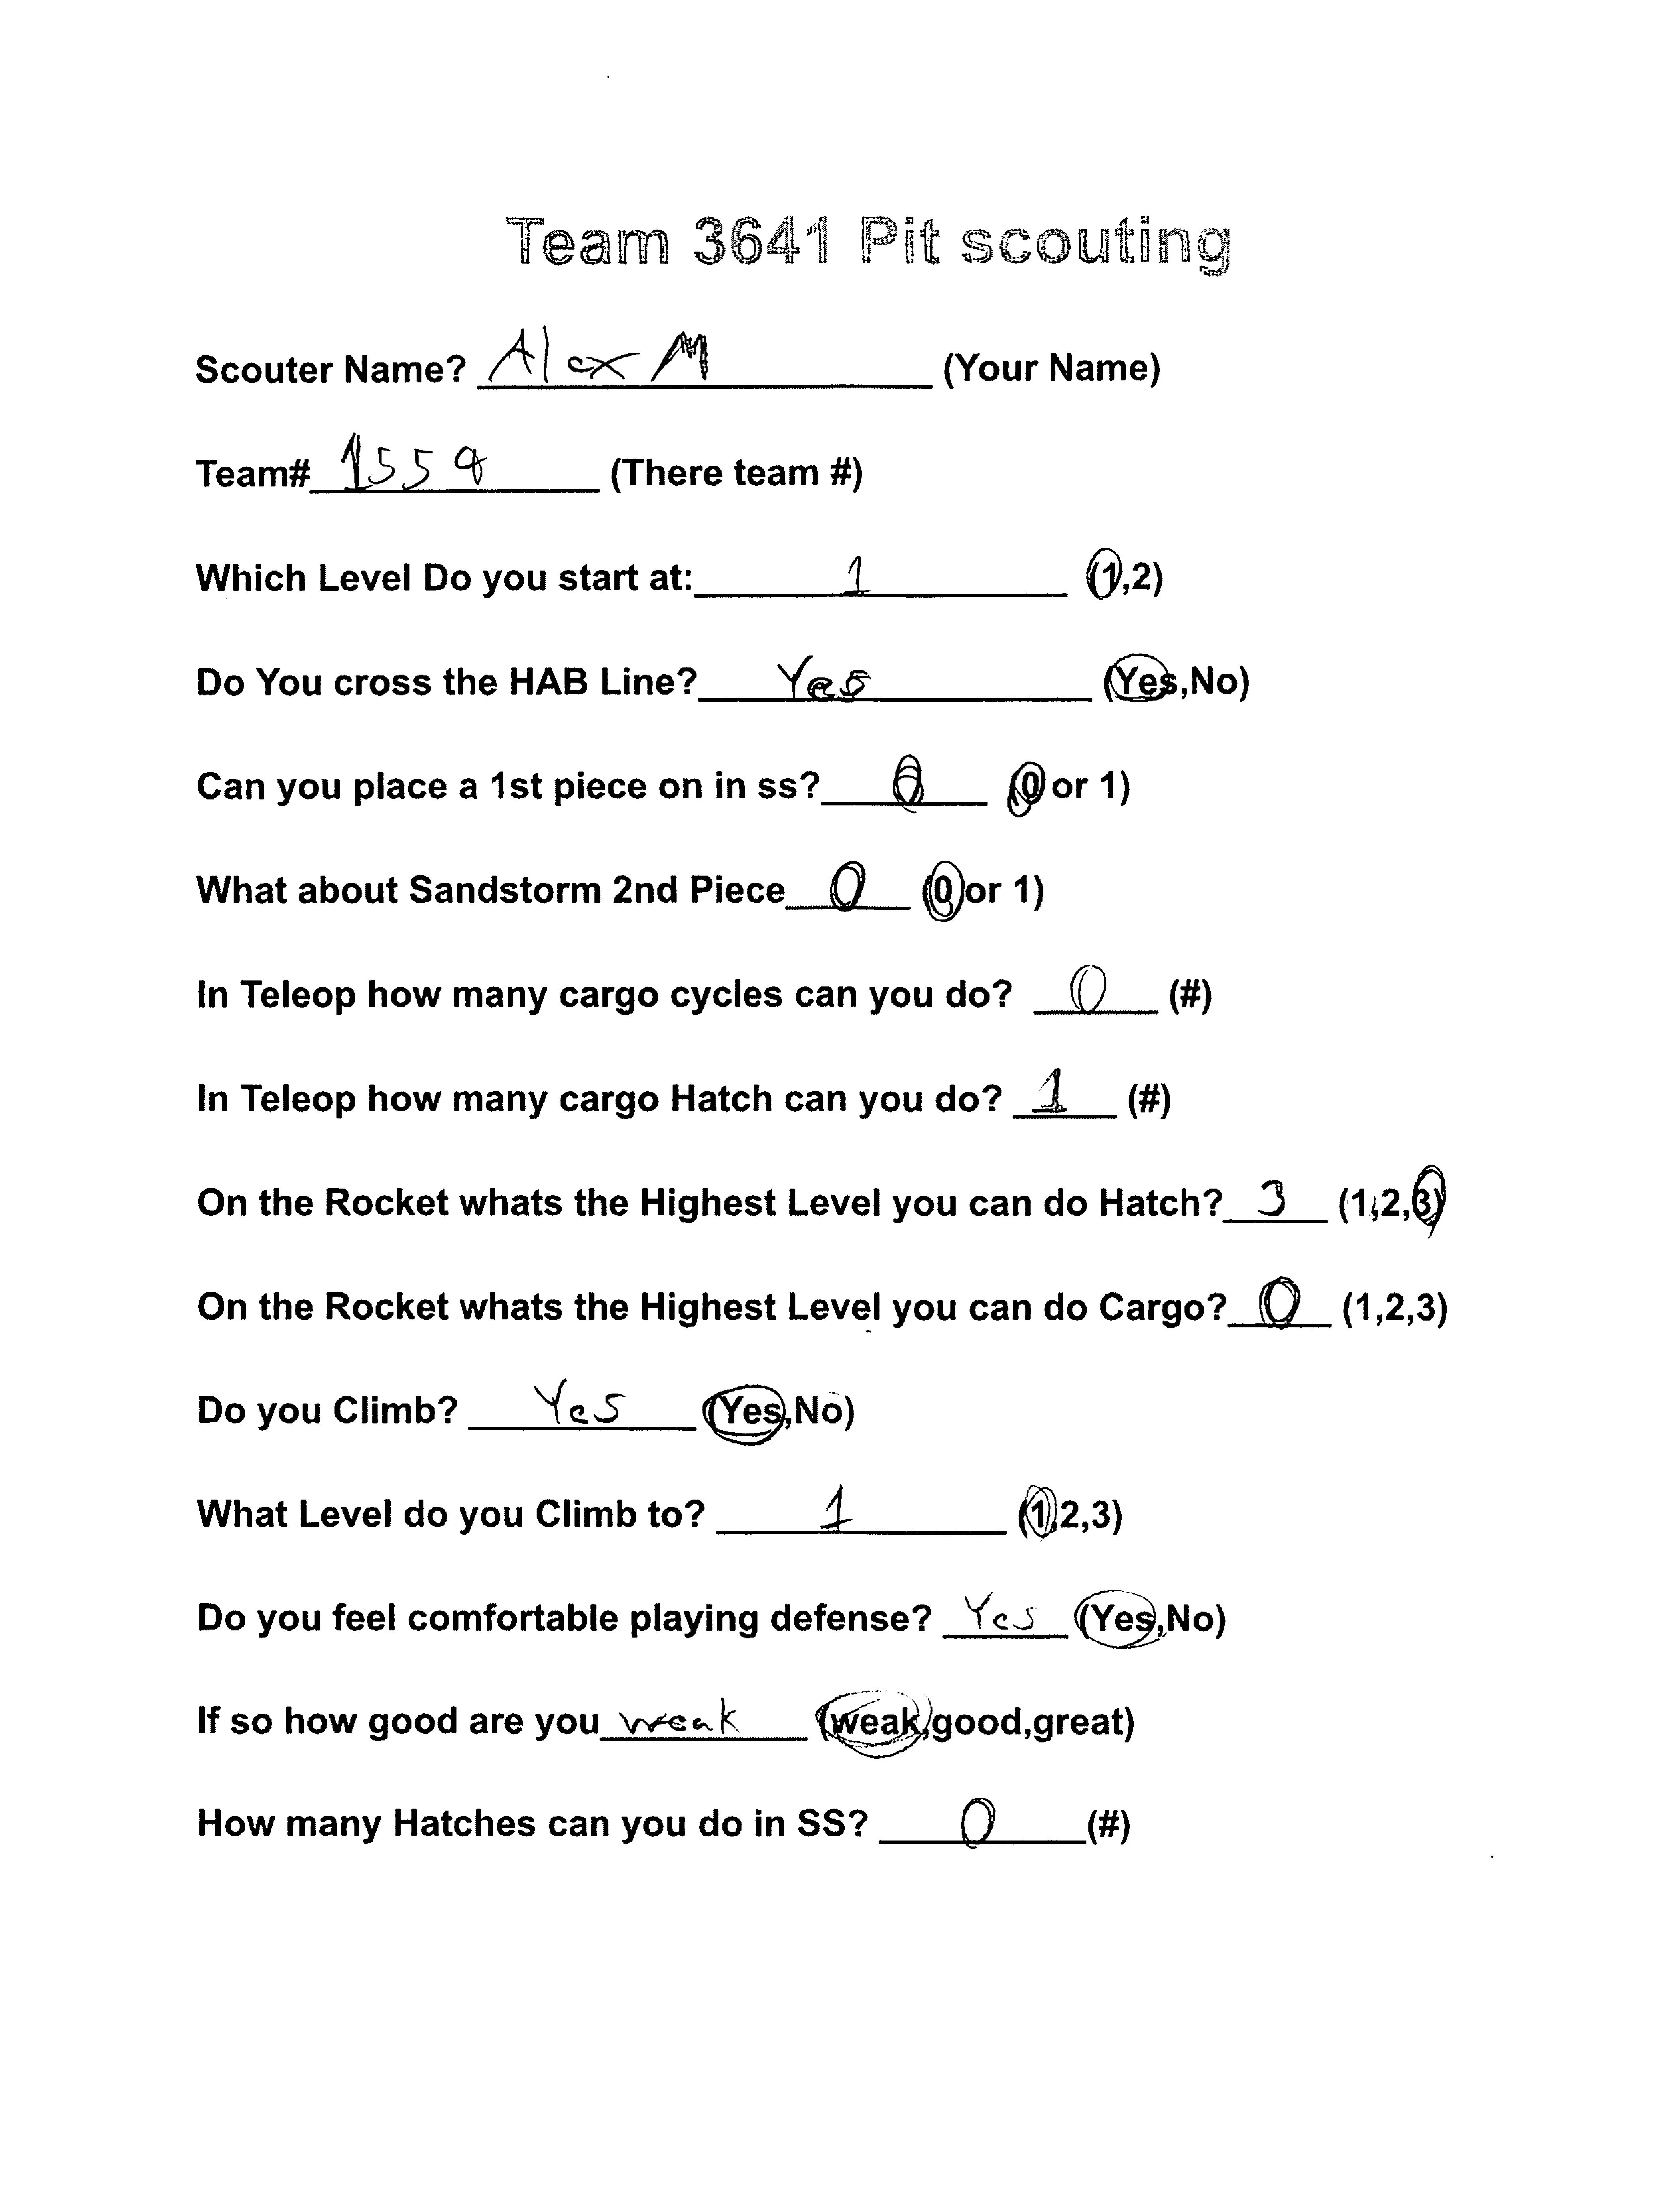 Team 3641 Pit scouting
Scouter Name? Alex M (Your Name)
Team# 1559 (There team #)
Which Level Do you start at: 1 (1,2)
Do You cross the HAB Line? Yes (Yes,No)
Can you place a 1st piece on in ss? 0 (0 or 1)
What about Sandstorm 2nd Piece 0 (0 or 1)
In Teleop how many cargo cycles can you do? 0 (#)
In Teleop how many cargo Hatch can you do? 1 (#)
On the Rocket whats the Highest Level you can do Hatch? 3 (1,2,3)
On the Rocket whats the Highest Level you can do Cargo? 0 (1,2,3)
Do you Climb? Yes (Yes,No)
What Level do you Climb to? 1 (1,2,3)
Do you feel comfortable playing defense? Yes (Yes,No)
If so how good are you weak (weak,good,great)
How many Hatches can you do in SS? 0 (#)